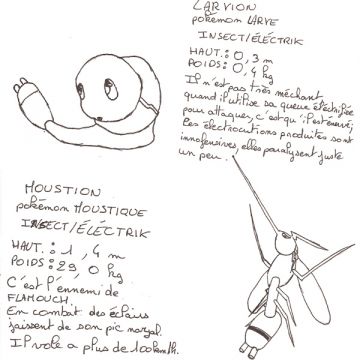 LARVION
pokémon LARVE
INSECT/ÉLÉCTRIK
HAUT.: 0,3 m
POIDS: 0,4 kg
Il n'est pas très méchant
quand il utilise sa queue éléctrifiée
pour attaquer, c'est qu'il est énervé,
Les électrocutions produites sont
innofensives, elles paralysent juste
un peu.
HOUSTION
pokémon MOUSTIQUE
INSECT/ÉLÉCTRIK
HAUT.: 1,4 m
POIDS: 29,0 kg
C'est l'ennemi de
FLAMOUCH.
En combat des éclairs
jaissent de son pic nazal.
Il vole a plus de 100km/h.